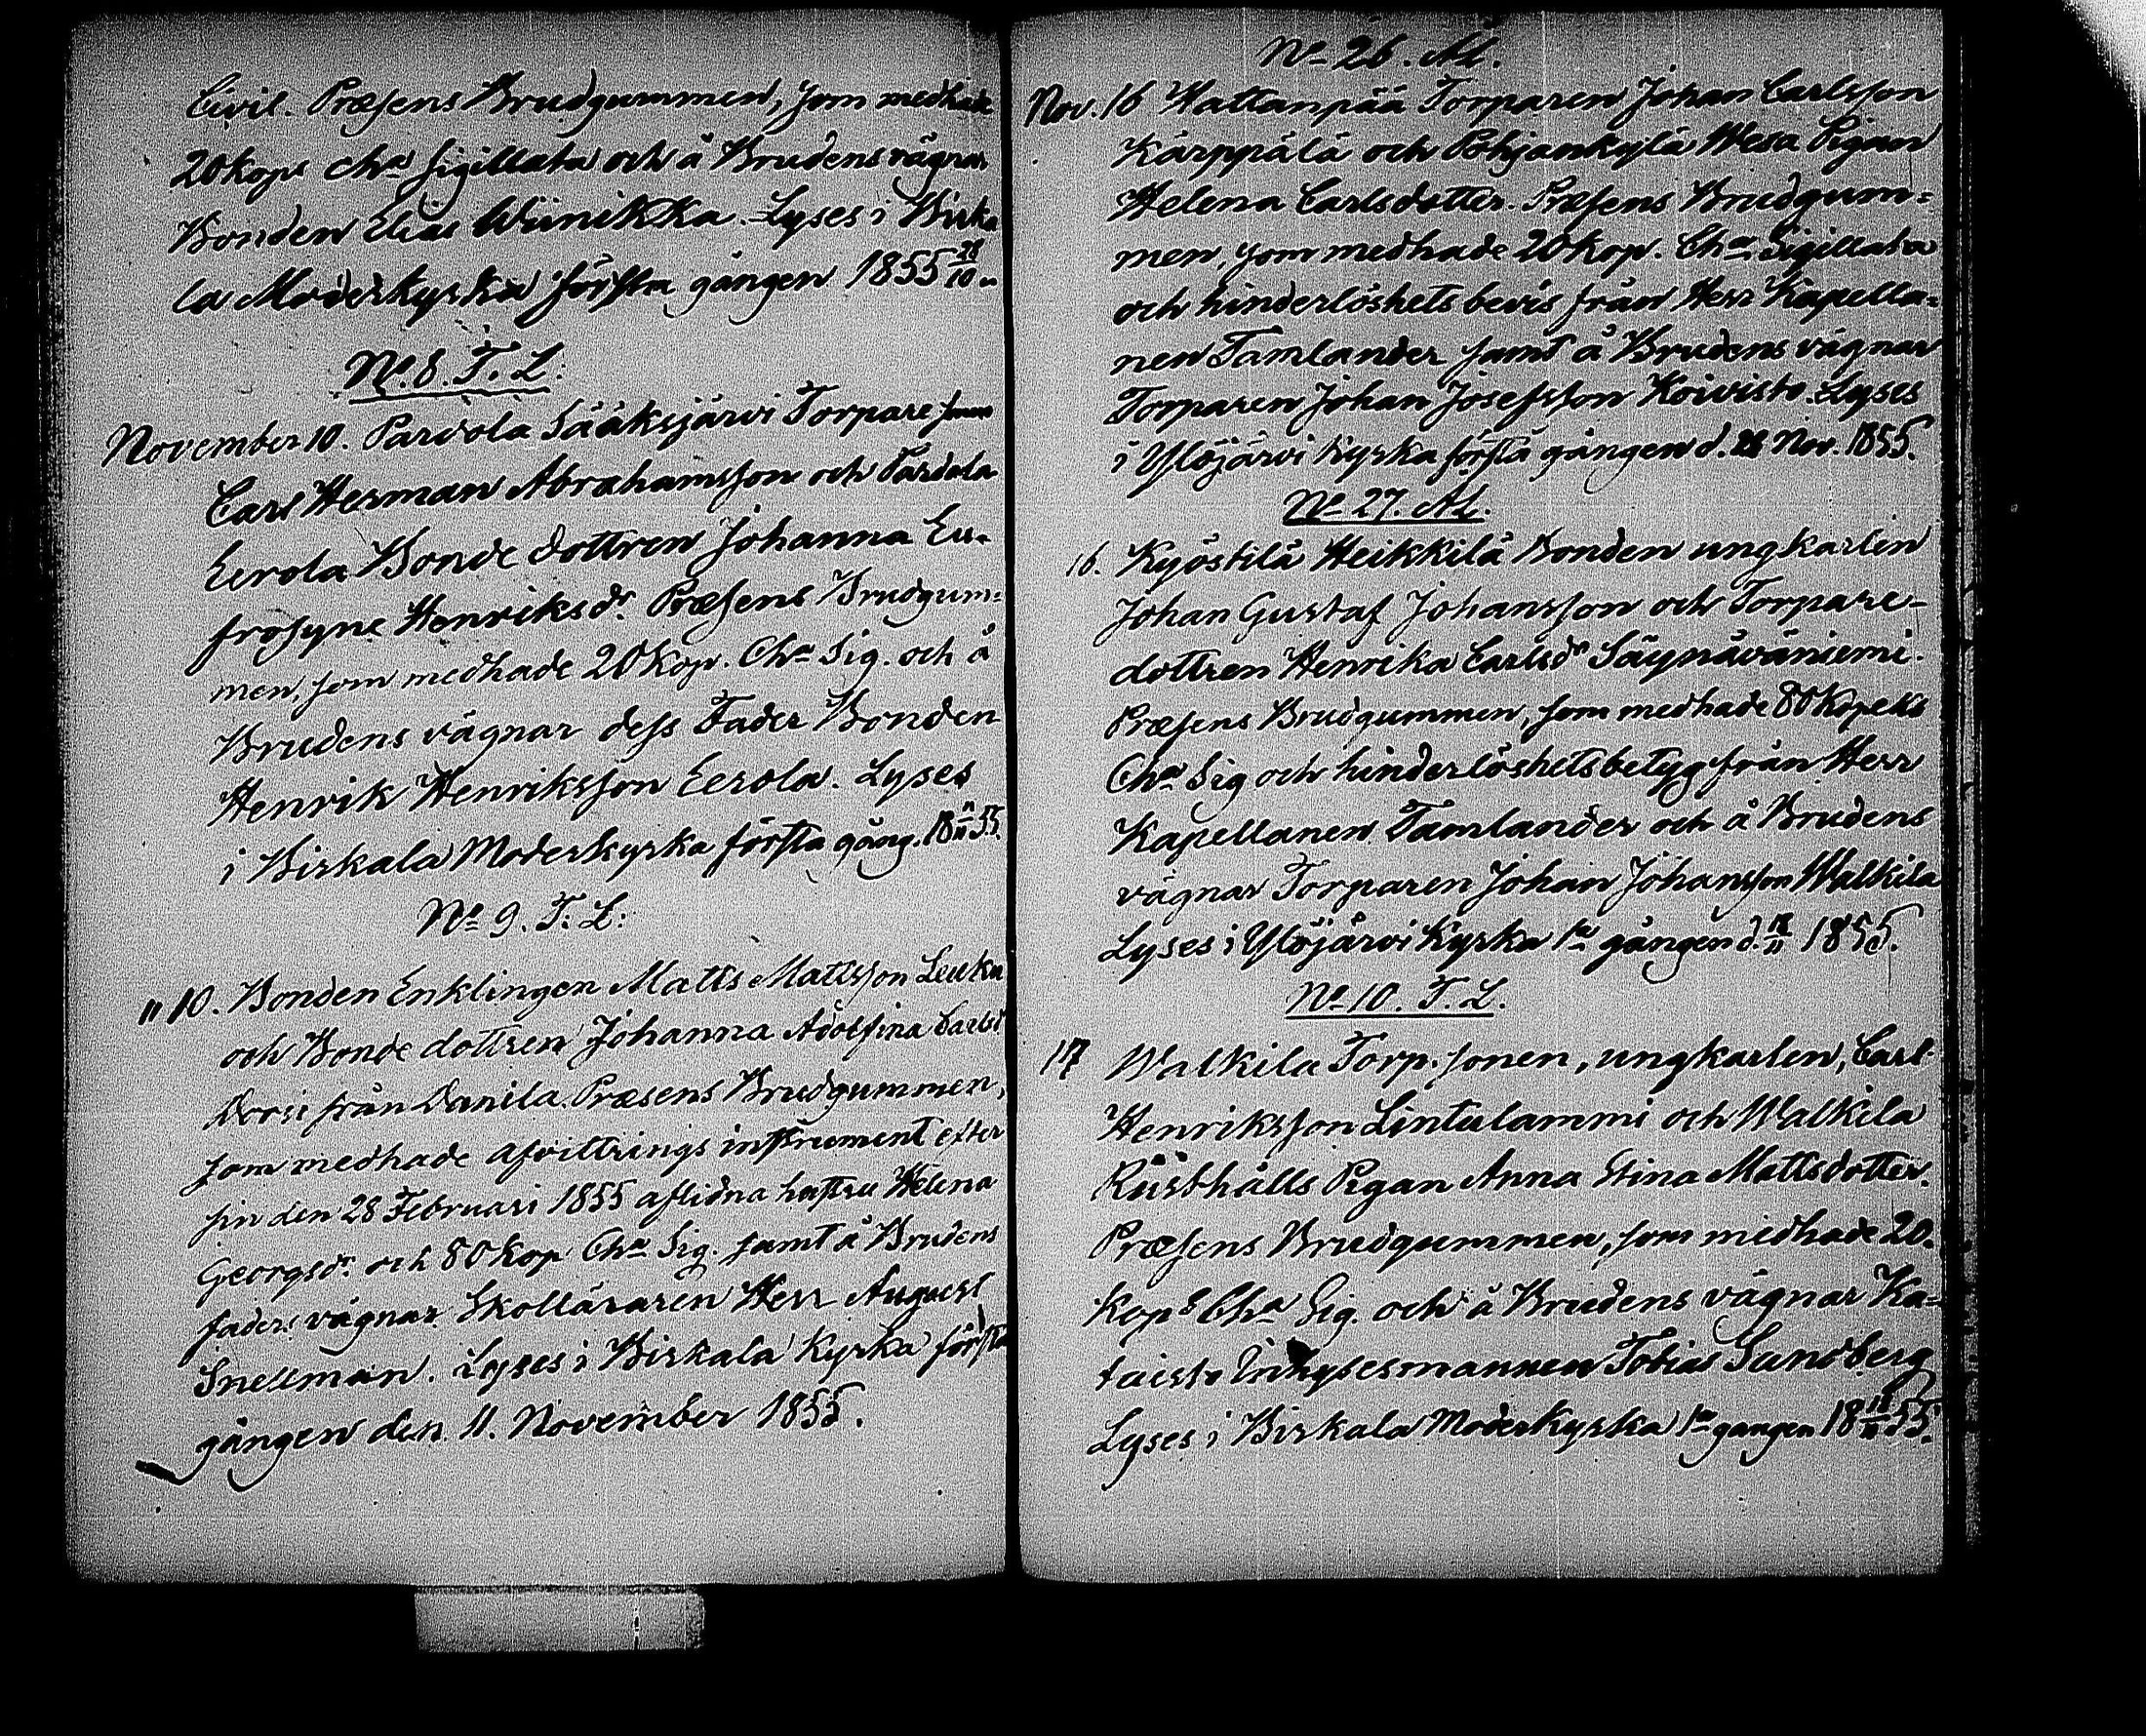 Civil. Præsens Brudgummen, som medhade
20 Kops Cha Sigillata och å Brudens vägnar
Bonden Elias Winikka. Lyses i Birka
la Moderkyrka första gången 1855 28/10
No. 8. T. L.
November 10. Pardola Sääksjärvi Torpare
Carl Herman Abrahamsson och Pardola
Eerola Bonde dottren Johanna Eu-
frosyne Henriksdr. Præsens Brudgum=
men, som medhade 20 Kop. Cha Sig. och å
Brudens vägnar dess Fader Bonden
Henrik Henriksson Eerola. Lyses
i Birkala Moderkyrka första gång. 18 11/11 55.
No 9. T. L.
" 10. Bonden Enklingen Matts Mattsson Leuku
och Bonde dottren Johanna Adolfina Carlsd
från Danila. Præsens Brudgummen,
som medhade afvittrings instrument efter
sin den 28 Februari 1855 aflidna hustru Helena
Georgsdr. och 80 Kop Cha Sig. samt å Brudens
faders vägnar Skolläraren Herr August
Snellman. Lyses i Birkala Kyrka första
gången den 11. November 1855.
No 26. Al.
Nov. 16 Hattanpää Torparen Johan Carlsson
Kärppälä och Pohjankylä Wesa Pigan
Helena Carlsdotter. Præsens Brudgum=
men, som medhade 20 Kop. Cha Sigillata
och hinderlöshets bevis från Herr Kapella=
nen Tamlander samt å Brudens vägnar
Torparen Johan Josefsson Koivisto. Lyses
i Ylöjärvi Kyrka första gången d. Nov. 1855.
No 27. Al.
16. Kyöstilä Heikkilä Bonden ungkarlen
Johan Gustaf Johansson och Torpare-
dottren Henrika Carlsdr Säynäväniemi.
Præsens Brudgummen, som medhade 80 Kopeks
Cha Sig och hinderlöshetsbetyg från Herr
Kapellanen Tamlander och å Brudens
vägnar Torparen Johan Johansson Walkila
Lyses i Ylöjärvi Kyrka 1a gången d. 18/11 1855.
No 10. T. L.
17 Walkila Torp. sonen, ungkarlen, Carl
Henriksson Lintulammi och Walkila
Rusthålls Pigan Anna Stina Mattsdotter.
Præsens Brudgummen, som medhade 20.
Kops Cha Sig. och å Brudens vägnar Ka=
taisto Inhysesmannen Tobias Sundberg
Lyses i Birkala Moderkyrka 1a gången 18 18/11 55.